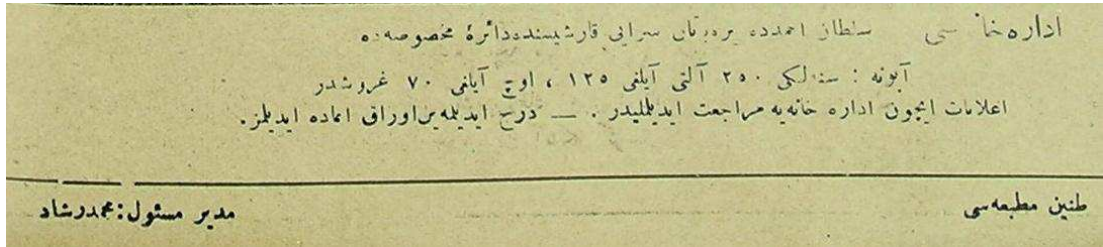 اداره‌خانه‌سی سلطان احمدده پره‌وتان سرایی قارشیسنده دائرهٔ مخصوصه‌ده
آبونه : سنه‌لكی ٢٥٠ آلتی آیلغی ١٢٥ ، اوچ آیلغی ٧٠ غروشدر
اعلانات ایچون اداره خانه‌یه مراجعت ایدیلملیدر . — درج ایدیلمه‌ین اوراق اعاده ایدیلمز.
طنین مطبعه‌سی
مدیر مسئول: محمد رشاد